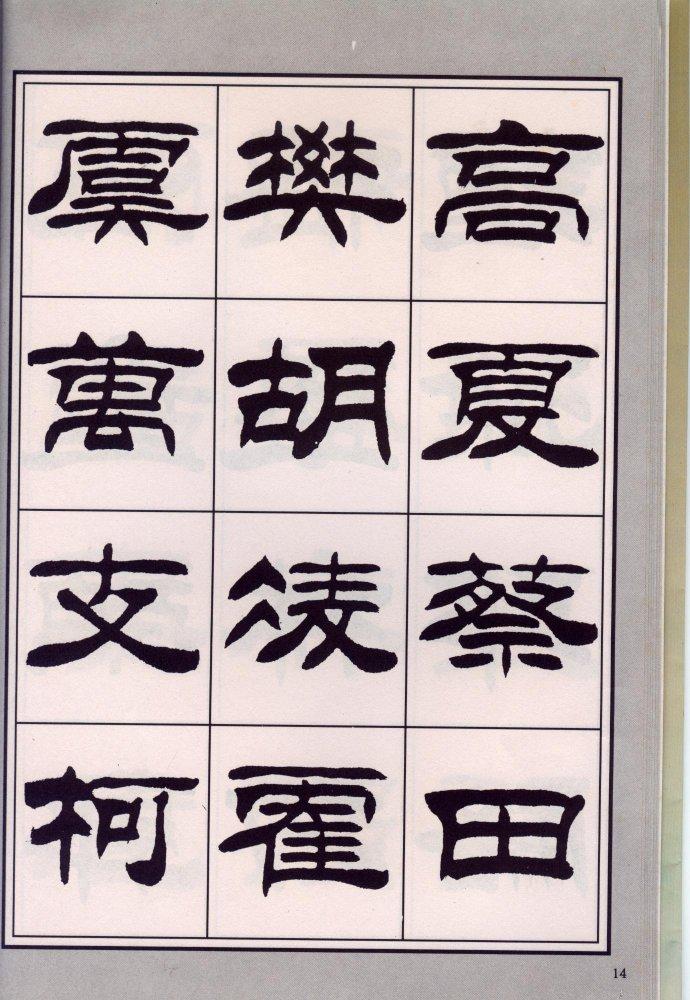 高夏蔡田
樊胡凌霍
虞萬支柯
14